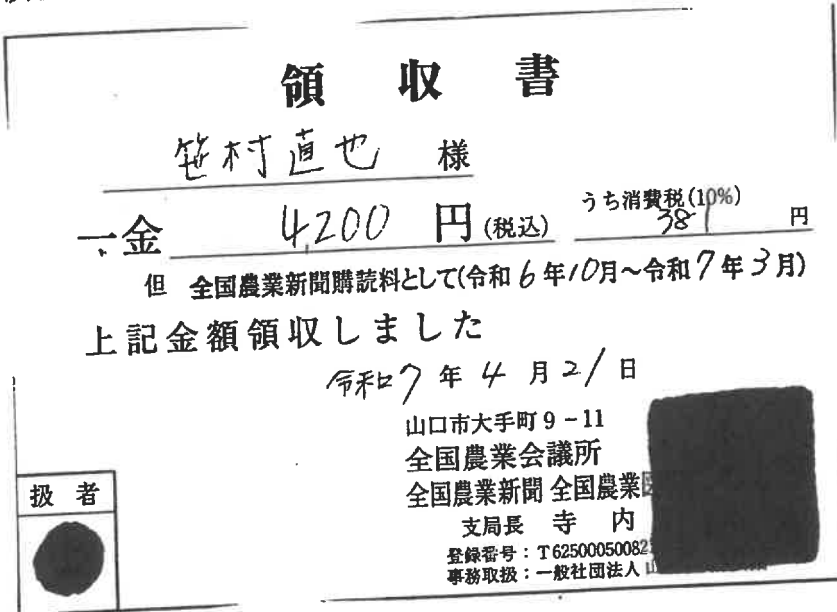 領収書
笹村直也 様
一金 4,200 円 (税込) うち消費税(10%) 381 円
但 全国農業新聞購読料として(令和6年10月~令和7年3月)
上記金額領収しました
令和7年4月21日
山口市大手町9-11
全国農業会議所
全国農業新聞 全国農業
支局長 寺内
登録番号:T62500050082
事務取扱:一般社団法人
扱者